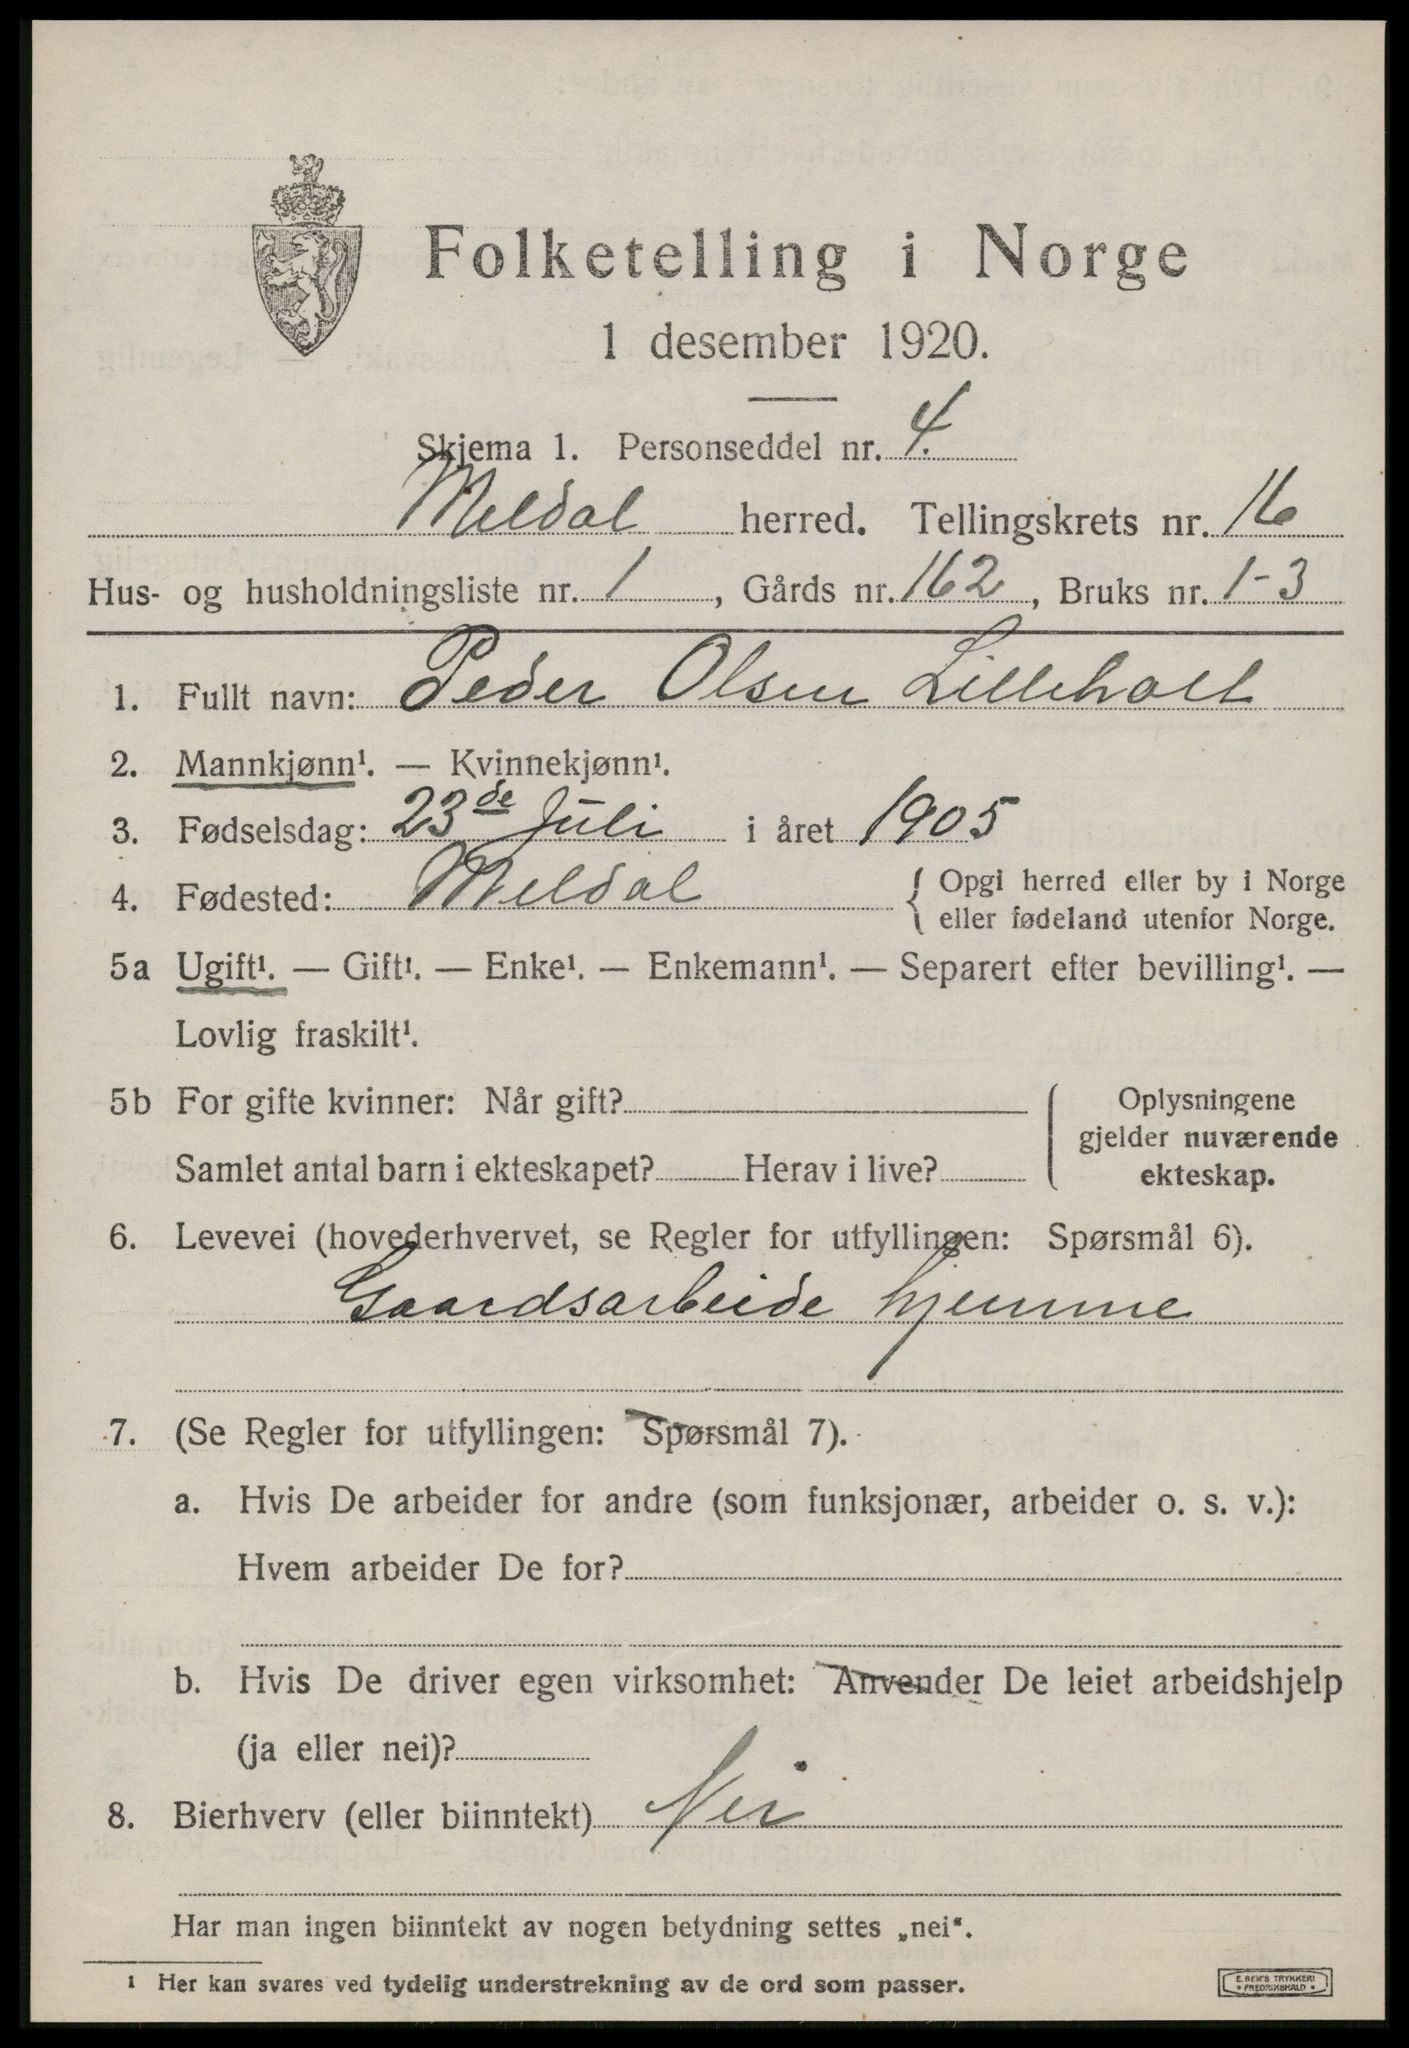 Folketelling i Norge
1 desember 1920.
Skjema 1. Personseddel nr. 4.
Meldal herred. Tellingskrets nr. 16
Hus- og husholdningsliste nr. 1, Gårds nr. 162, Bruks nr. 1-3
1. Fullt navn: Peder Olsen Lilleholt
2. Mannkjønn¹. — Kvinnekjønn¹.
3. Fødselsdag: 23de Juli i året 1905
4. Fødested: Meldal { Opgi herred eller by i Norge
eller fødeland utenfor Norge.
5a Ugift¹. — Gift¹. — Enke¹. — Enkemann¹. — Separert efter bevilling¹. —
Lovlig fraskilt¹.
5b For gifte kvinner: Når gift? Oplysningene
gjelder nuværende
Samlet antal barn i ekteskapet? Herav i live? ekteskap.
6. Levevei (hovederhvervet, se Regler for utfyllingen: Spørsmål 6).
Gaardsarbeide hjemme
7. (Se Regler for utfyllingen: Spørsmål 7).
a. Hvis De arbeider for andre (som funksjonær, arbeider o. s. v.):
Hvem arbeider De for?
b. Hvis De driver egen virksomhet: Anvender De leiet arbeidshjelp
(ja eller nei)?
8. Bierhverv (eller biinntekt) Nei
Har man ingen biinntekt av nogen betydning settes „nei“.
¹ Her kan svares ved tydelig understrekning av de ord som passer.
E. SEM'S TRYKKERI
• FREDRIKSHALD •